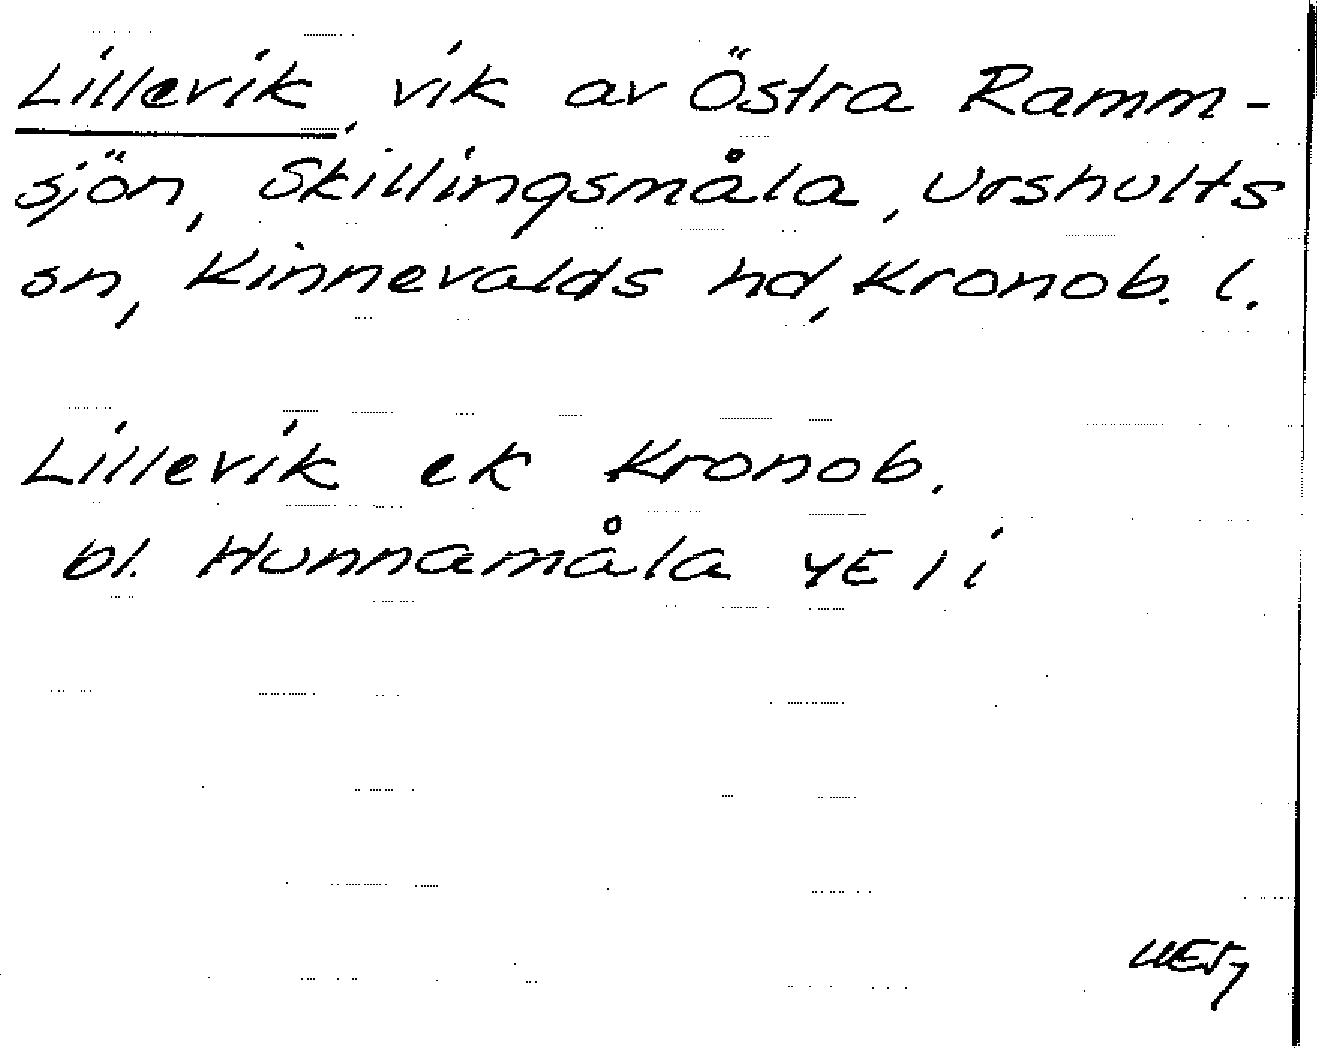 Lillevik, vik av Östra Ramm-
sjön, Skillingsmåla, Urshults
sn, Kinnevalds hd, Kronob. l.
Lillevik ek Kronob.
bl. Hunnamåla 4E 1 i